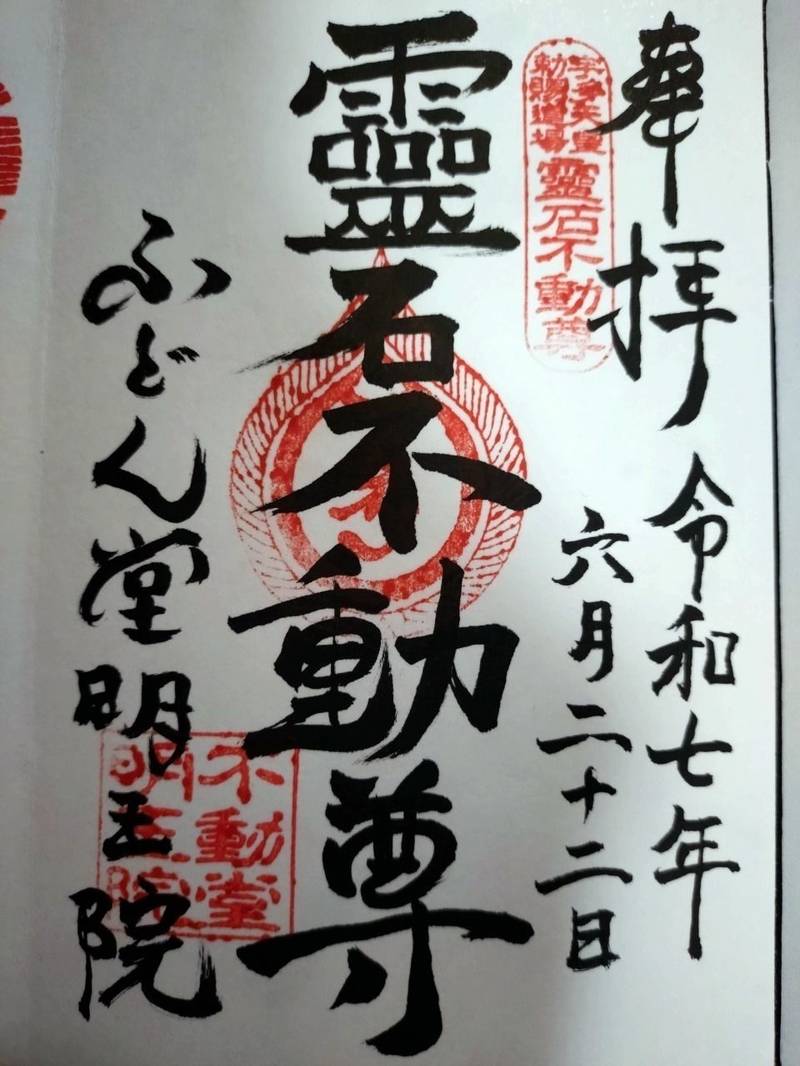 奉拝
令和七年
六月二十二日
宇多天皇
勅賜道場
靈石不動尊
靈石不動尊
ふどん堂明王院
不動堂
明王院